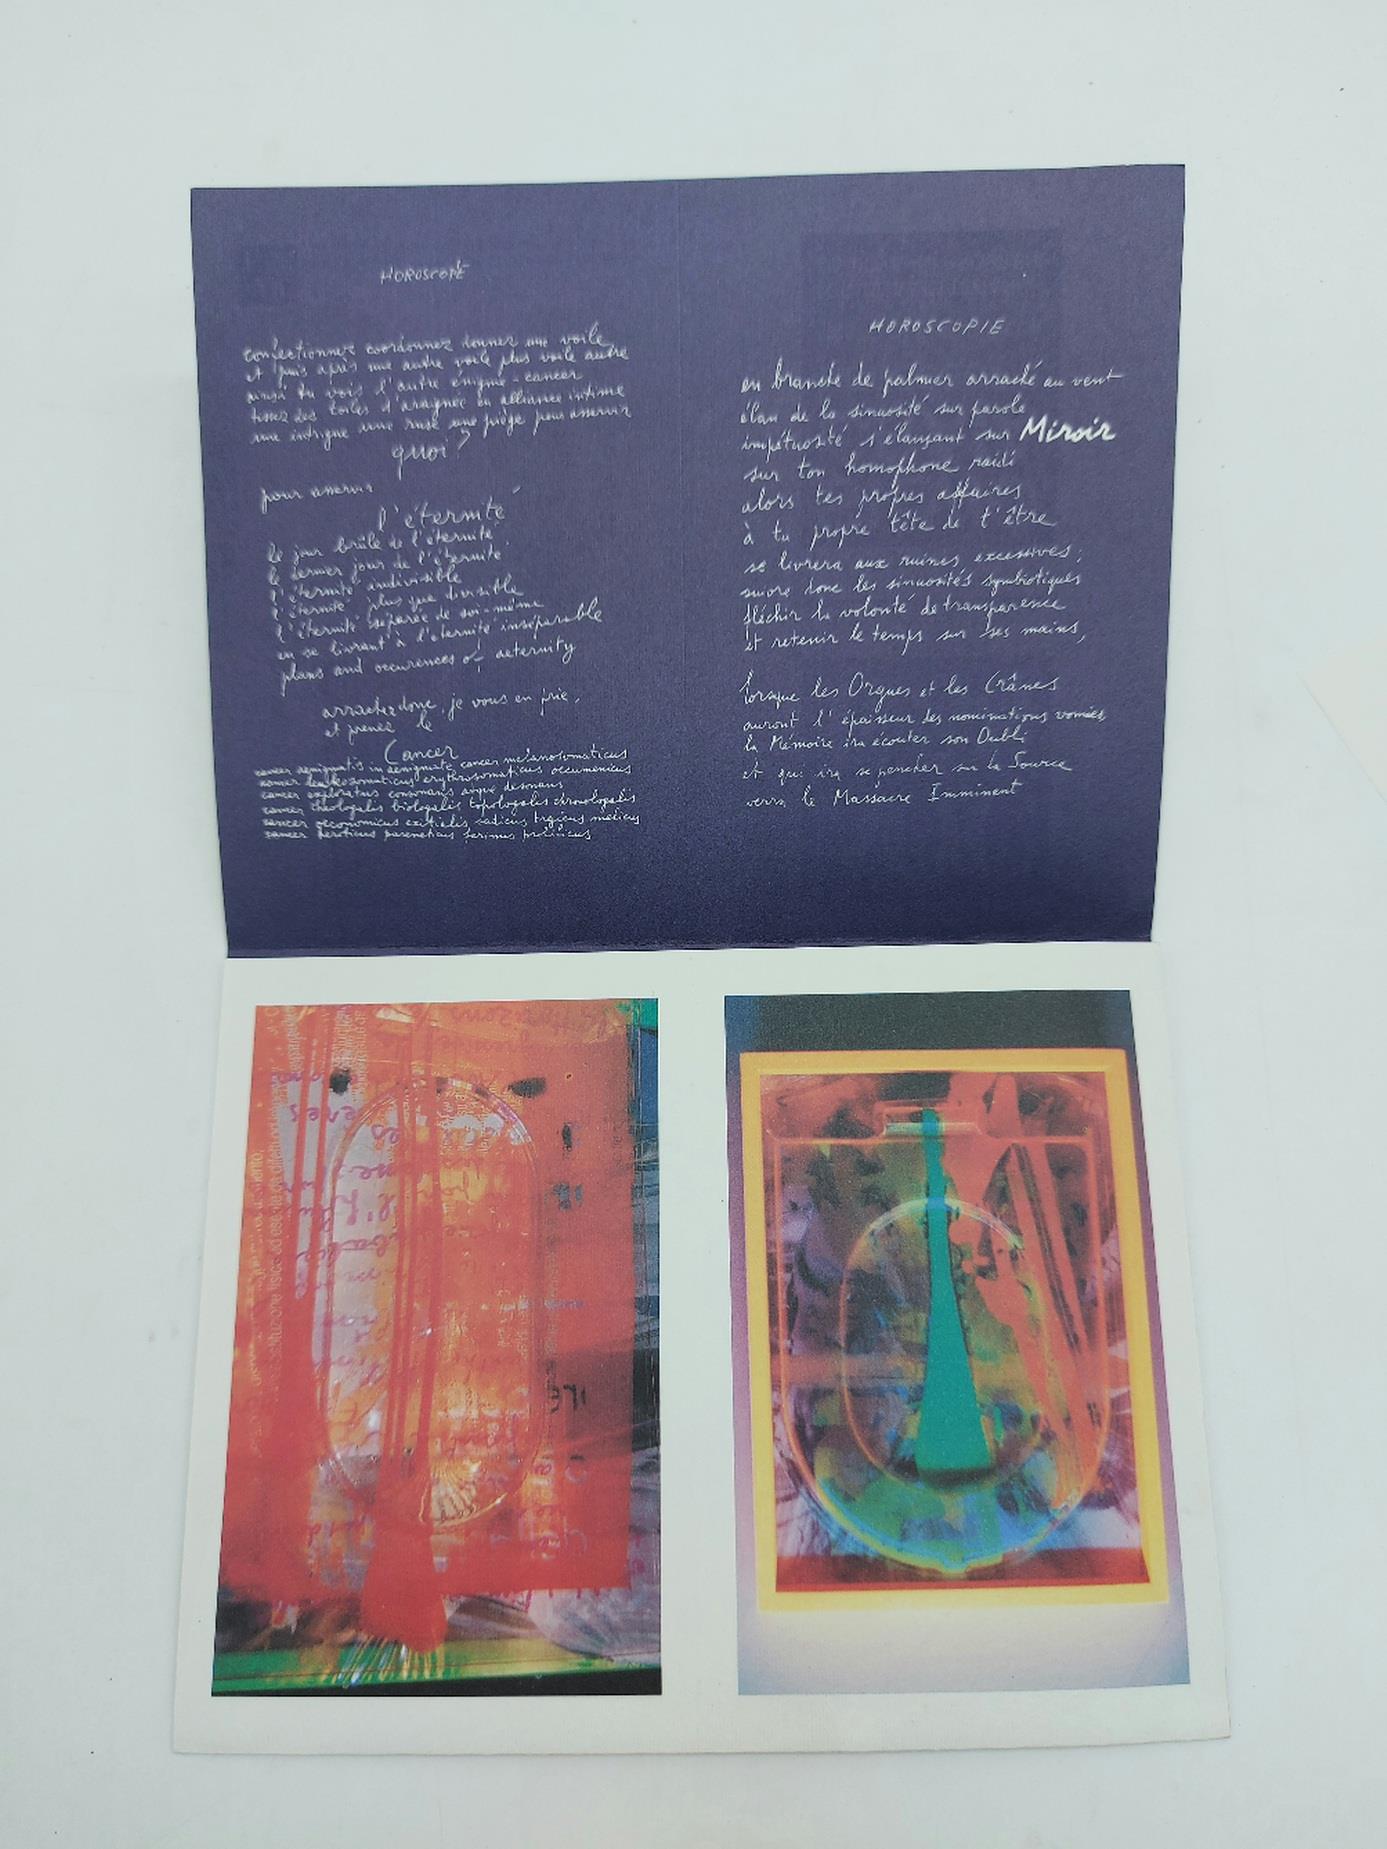 HOROSCOPE
confectionnez coordonnez donnez une voile
et puis après une autre voile plus voile autre
ainsi tu vois l'autre énigme-cancer
tissez des toiles d'araignée en alliance intime
une intrigue une ruse une piège pour asservir
quoi?
pour asservir
l'éternité
le jour brûlé de l'éternité
le dernier jour de l'éternité
l'éternité indivisible
l'éternité plus que divisible
l'éternité separée de soi-même
en se livrant à l'éternité inséparable
plans and occurences of aeternity
arrachez donc, je vous en prie,
et prenez le
Cancer
cancer aenigmatis in aenigmate cancer melanosomaticus
erythrosomaticus oecumenicus
cancer exploratus consonans atque desonans
cancer theologalis biologalis topologalis chronologalis
cancer oeconomicus exitialis sadicus tragicus medicus
cancer pareneticus
HOROSCOPIE
en branche de palmier arraché au vent
élan de la sinuosité sur parole
impétuosité s'élançant sur Miroir
sur ton homophone raidi
alors tes propres affaires
à ta propre tête de t'être
se livrera aux ruines excessives;
suivre donc les sinuosités symbiotiques
fléchir la volonté de transparence
et retenir le temps sur ses mains,
lorsque les Orgues et les Crânes
auront l'épaisseur des nominations vomies
la Mémoire ira écouter son Oubli
et qui ira se pencher sur la Source
verra le Massacre Imminent